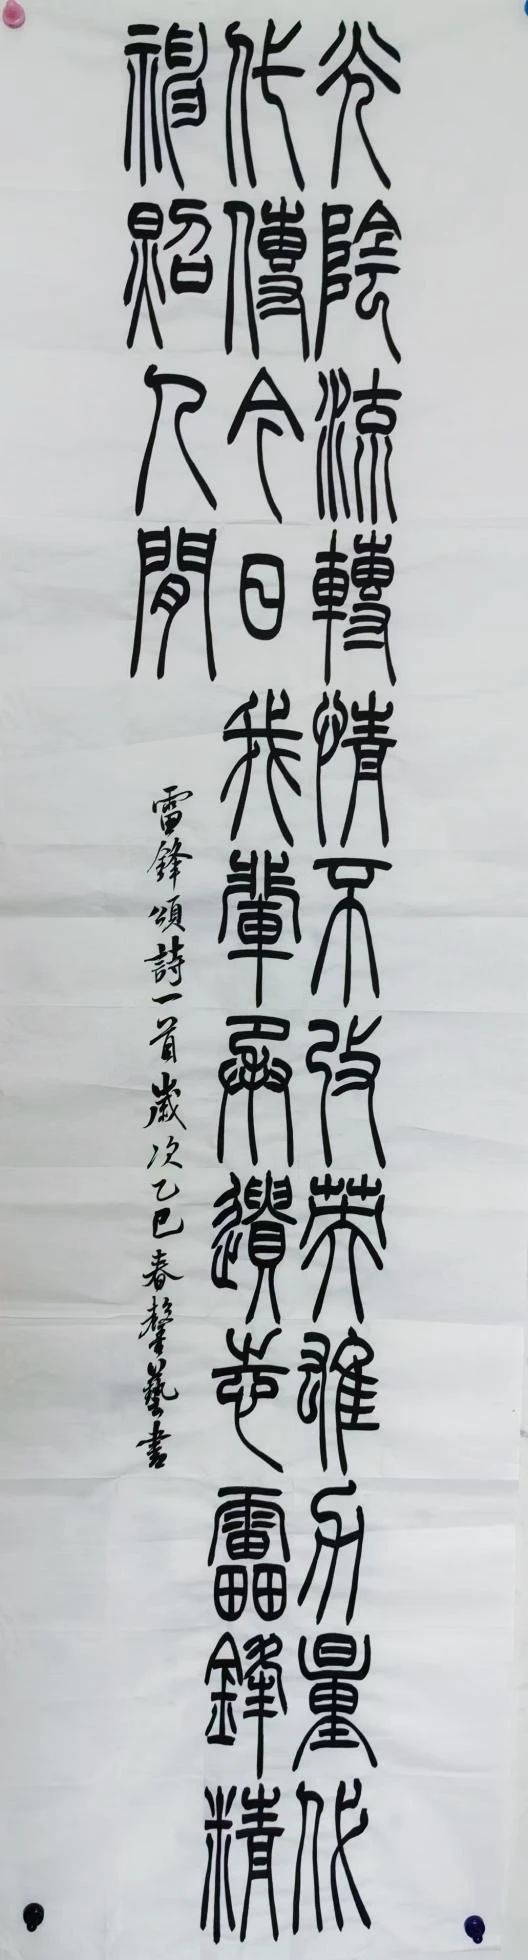 光陰流轉情不改英雄力量代
代傳今日我輩承遺志雷鋒精
神照人間
雷鋒頌詩一首歲次乙巳春馨藝書